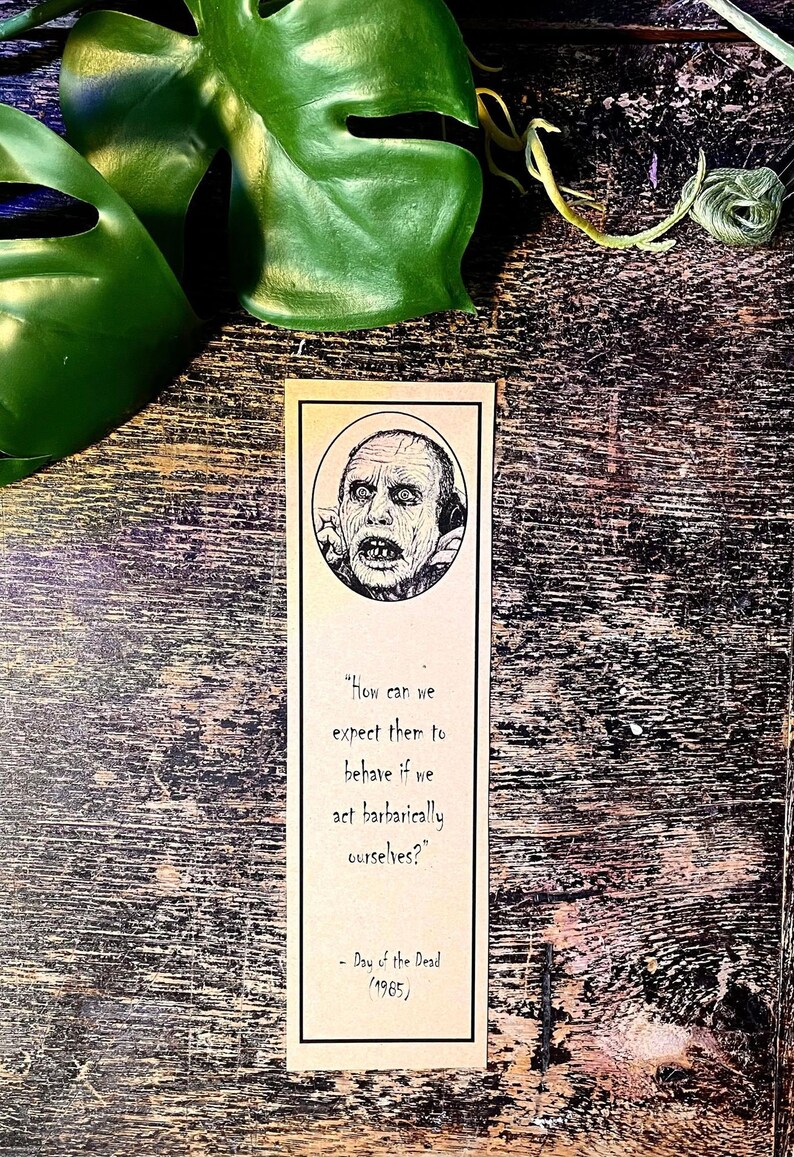 “How can we
expect them to
behave if we
act barbarically
ourselves?”
- Day of the Dead
(1985)